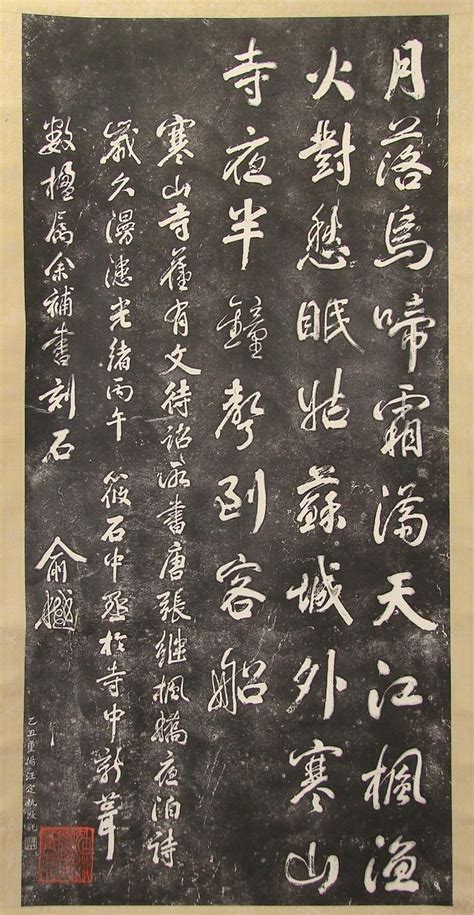 月落烏啼霜滿天江楓漁
火對愁眠姑蘇城外寒山
寺夜半鐘聲到客船
寒山寺舊有文待詔所書唐張繼楓橋夜泊詩
歲久漫漶光緒丙午 筱石中丞於寺中新葺
數楹屬余補書刻石 俞樾
乙丑重陽江定